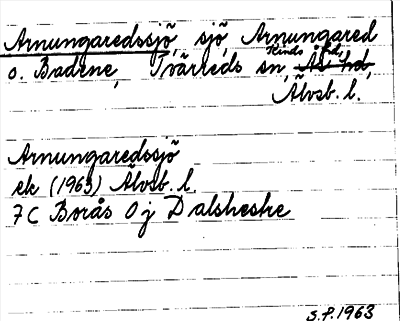 Arnungaredssjö, sjö, Arnungared
o. Badene, Tvärreds sn, Kinds hd,
Älvsb. l.
Arnungaredssjö
ek (1963) Älvsb. l.
7C Borås Oj Dalsheshe
S.P. 1963